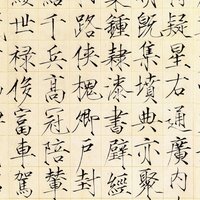 疑星右通廣内
既集墳典亦聚
鍾隸漆書壁經
路俠槐卿戶封
千兵高冠陪輦
世禄侈富車駕